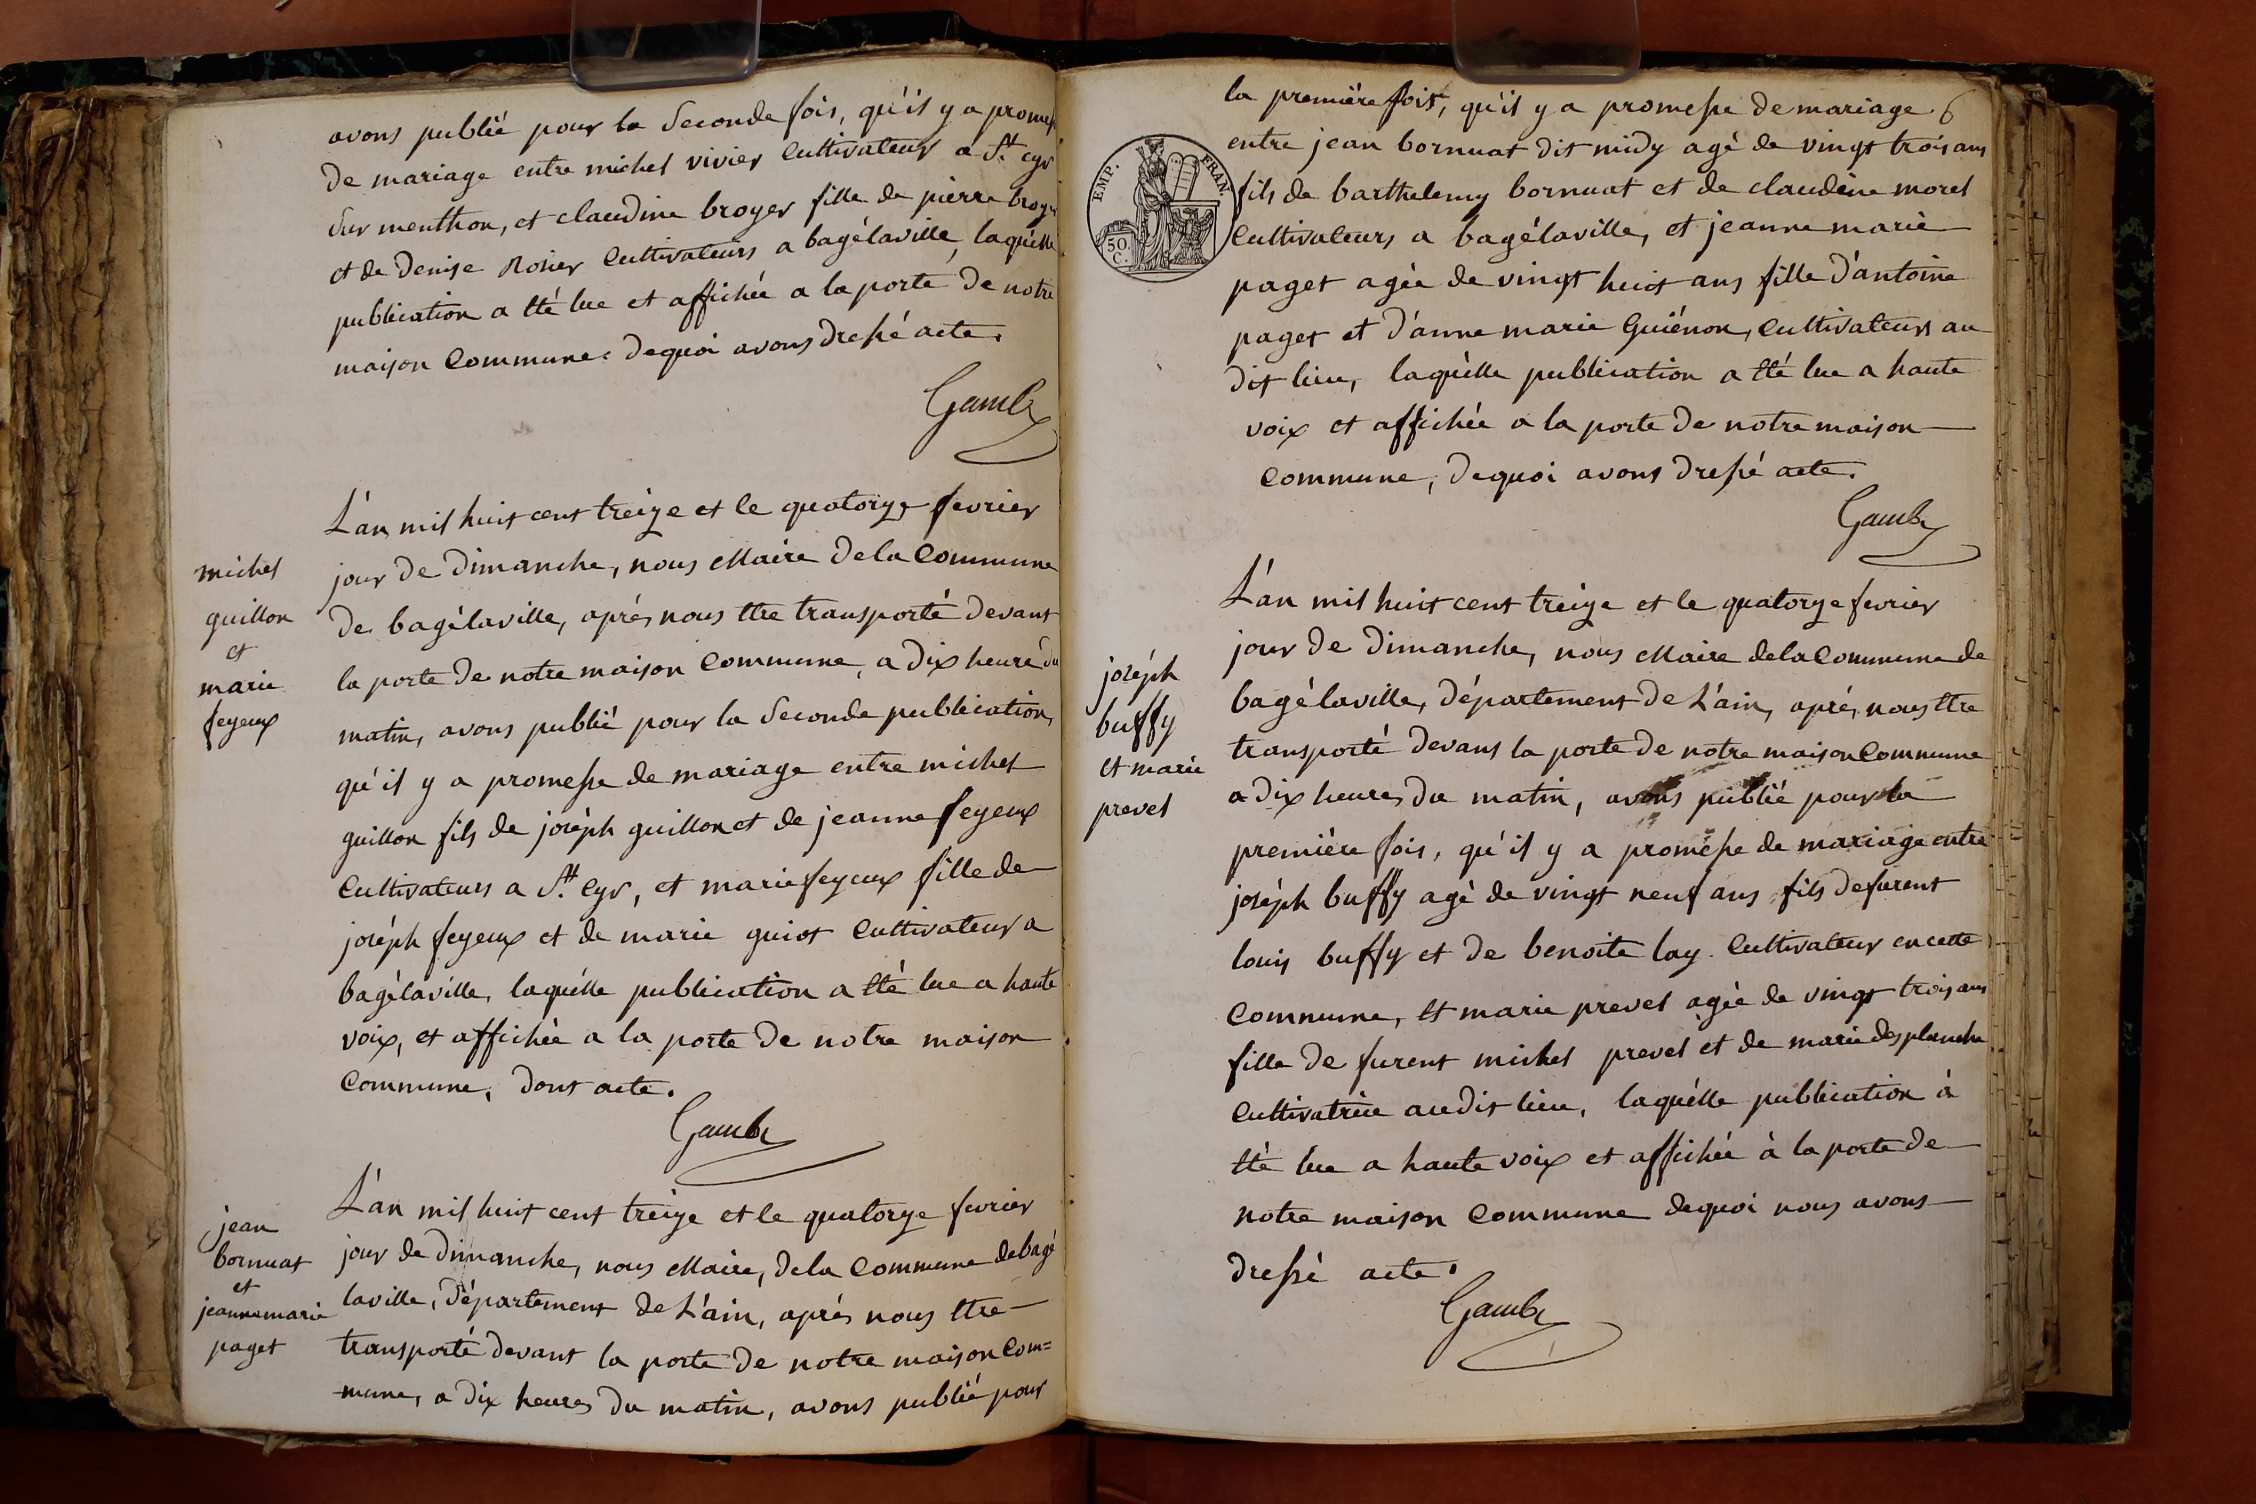 avons publié pour la Seconde fois, qu'il y a promesse
de mariage entre michel vivier Cultivateur a St. cyr
Sur menthon, et claudine broyer fille de pierre broyer
et de Denise Cultivateurs a bagélaville, laquélle
publication a tté lue et affichée a la porte de notre
maison Commune: dequoi avons dressé acte.
Gamb
michel
guillon
et
marie
feyeux
L'an mil huit cent treize et le quatorze fevrier
jour de Dimanche, nous Maire de la Commune
de bagélaville, aprés nous ttre transporté devant
la porte de notre maison Commune, a dix heure du
matin, avons publié pour la Seconde publication,
qu'il y a promesse de mariage entre michel
guillon fils de joséph guillon et de jeanne feyeux
Cultivateurs a St. Cyr, et marie feyeux fille de
joséph feyeux et de marie guiot Cultivateur a
bagélaville, laquélle publication a tté lue a haute
voix, et affichée a la porte de notre maison
Commune, dont acte.
Gamb
jean
bornuat
et
jeanne marie
paget
L'an mil huit cent treize et le quatorze fevrier
jour de Dimanche, nous Maire, de la Commune de bagé
laville, Département de L'ain, aprés nous ttre
transporté devant la porte de notre maison Com=
mune, a dix heures du matin, avons publié pour
6
EMP. FRAN.
50.
C.
la premiére fois, qu'il y a promesse de mariage
entre jean bornuat dit midy agé de vingt trois ans
fils de barthelemy bornuat et de claudine morel
Cultivateurs a bagélaville, et jeanne marie
paget agée de vingt huit ans fille d'antoine
paget et d'anne marie Guiénon, Cultivateurs au
dit lieu, laquélle publication a tté lue a haute
voix et affichée a la porte de notre maison
Commune, dequoi avons dressé acte.
Gamb
joséph
buffy
et marie
prevel
L'an mil huit cent treize et le quatorze fevrier
jour de Dimanche, nous Maire de la Commune de
bagélaville, Département de L'ain, aprés nous ttre
transporté devant la porte de notre maison Commune
a dix heures du matin, avons publié pour la
premiére fois, qu'il y a promesse de mariage entre
joséph buffy agé de vingt neuf ans fils defurent
louis buffy et de benoite lay Cultivateur en cette
Commune, et marie prevel agée de vingt trois ans
fille de furent michel prevel et de marie desplanche
Cultivatrice audit lieu, laquélle publication à
tté lue a haute voix et affichée à la porte de
notre maison Commune dequoi nous avons
dressé acte.
Gamb